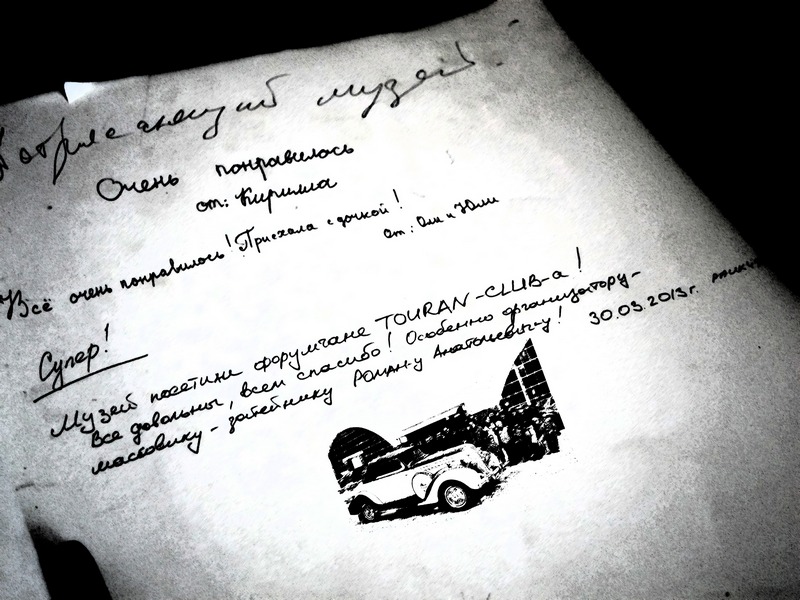 Потрясающий музей.
Очень понравилось
от: Кирилла
Всё очень понравилось! Приехала с дочкой!
от: Оли и Юли
Супер!
Музей посетили форумчане TOURAN-CLUB-а!
Все довольны, всем спасибо! Особенно организатору-
массовику-затейнику Роман-у Анатольевичу! 30.03.2013г.